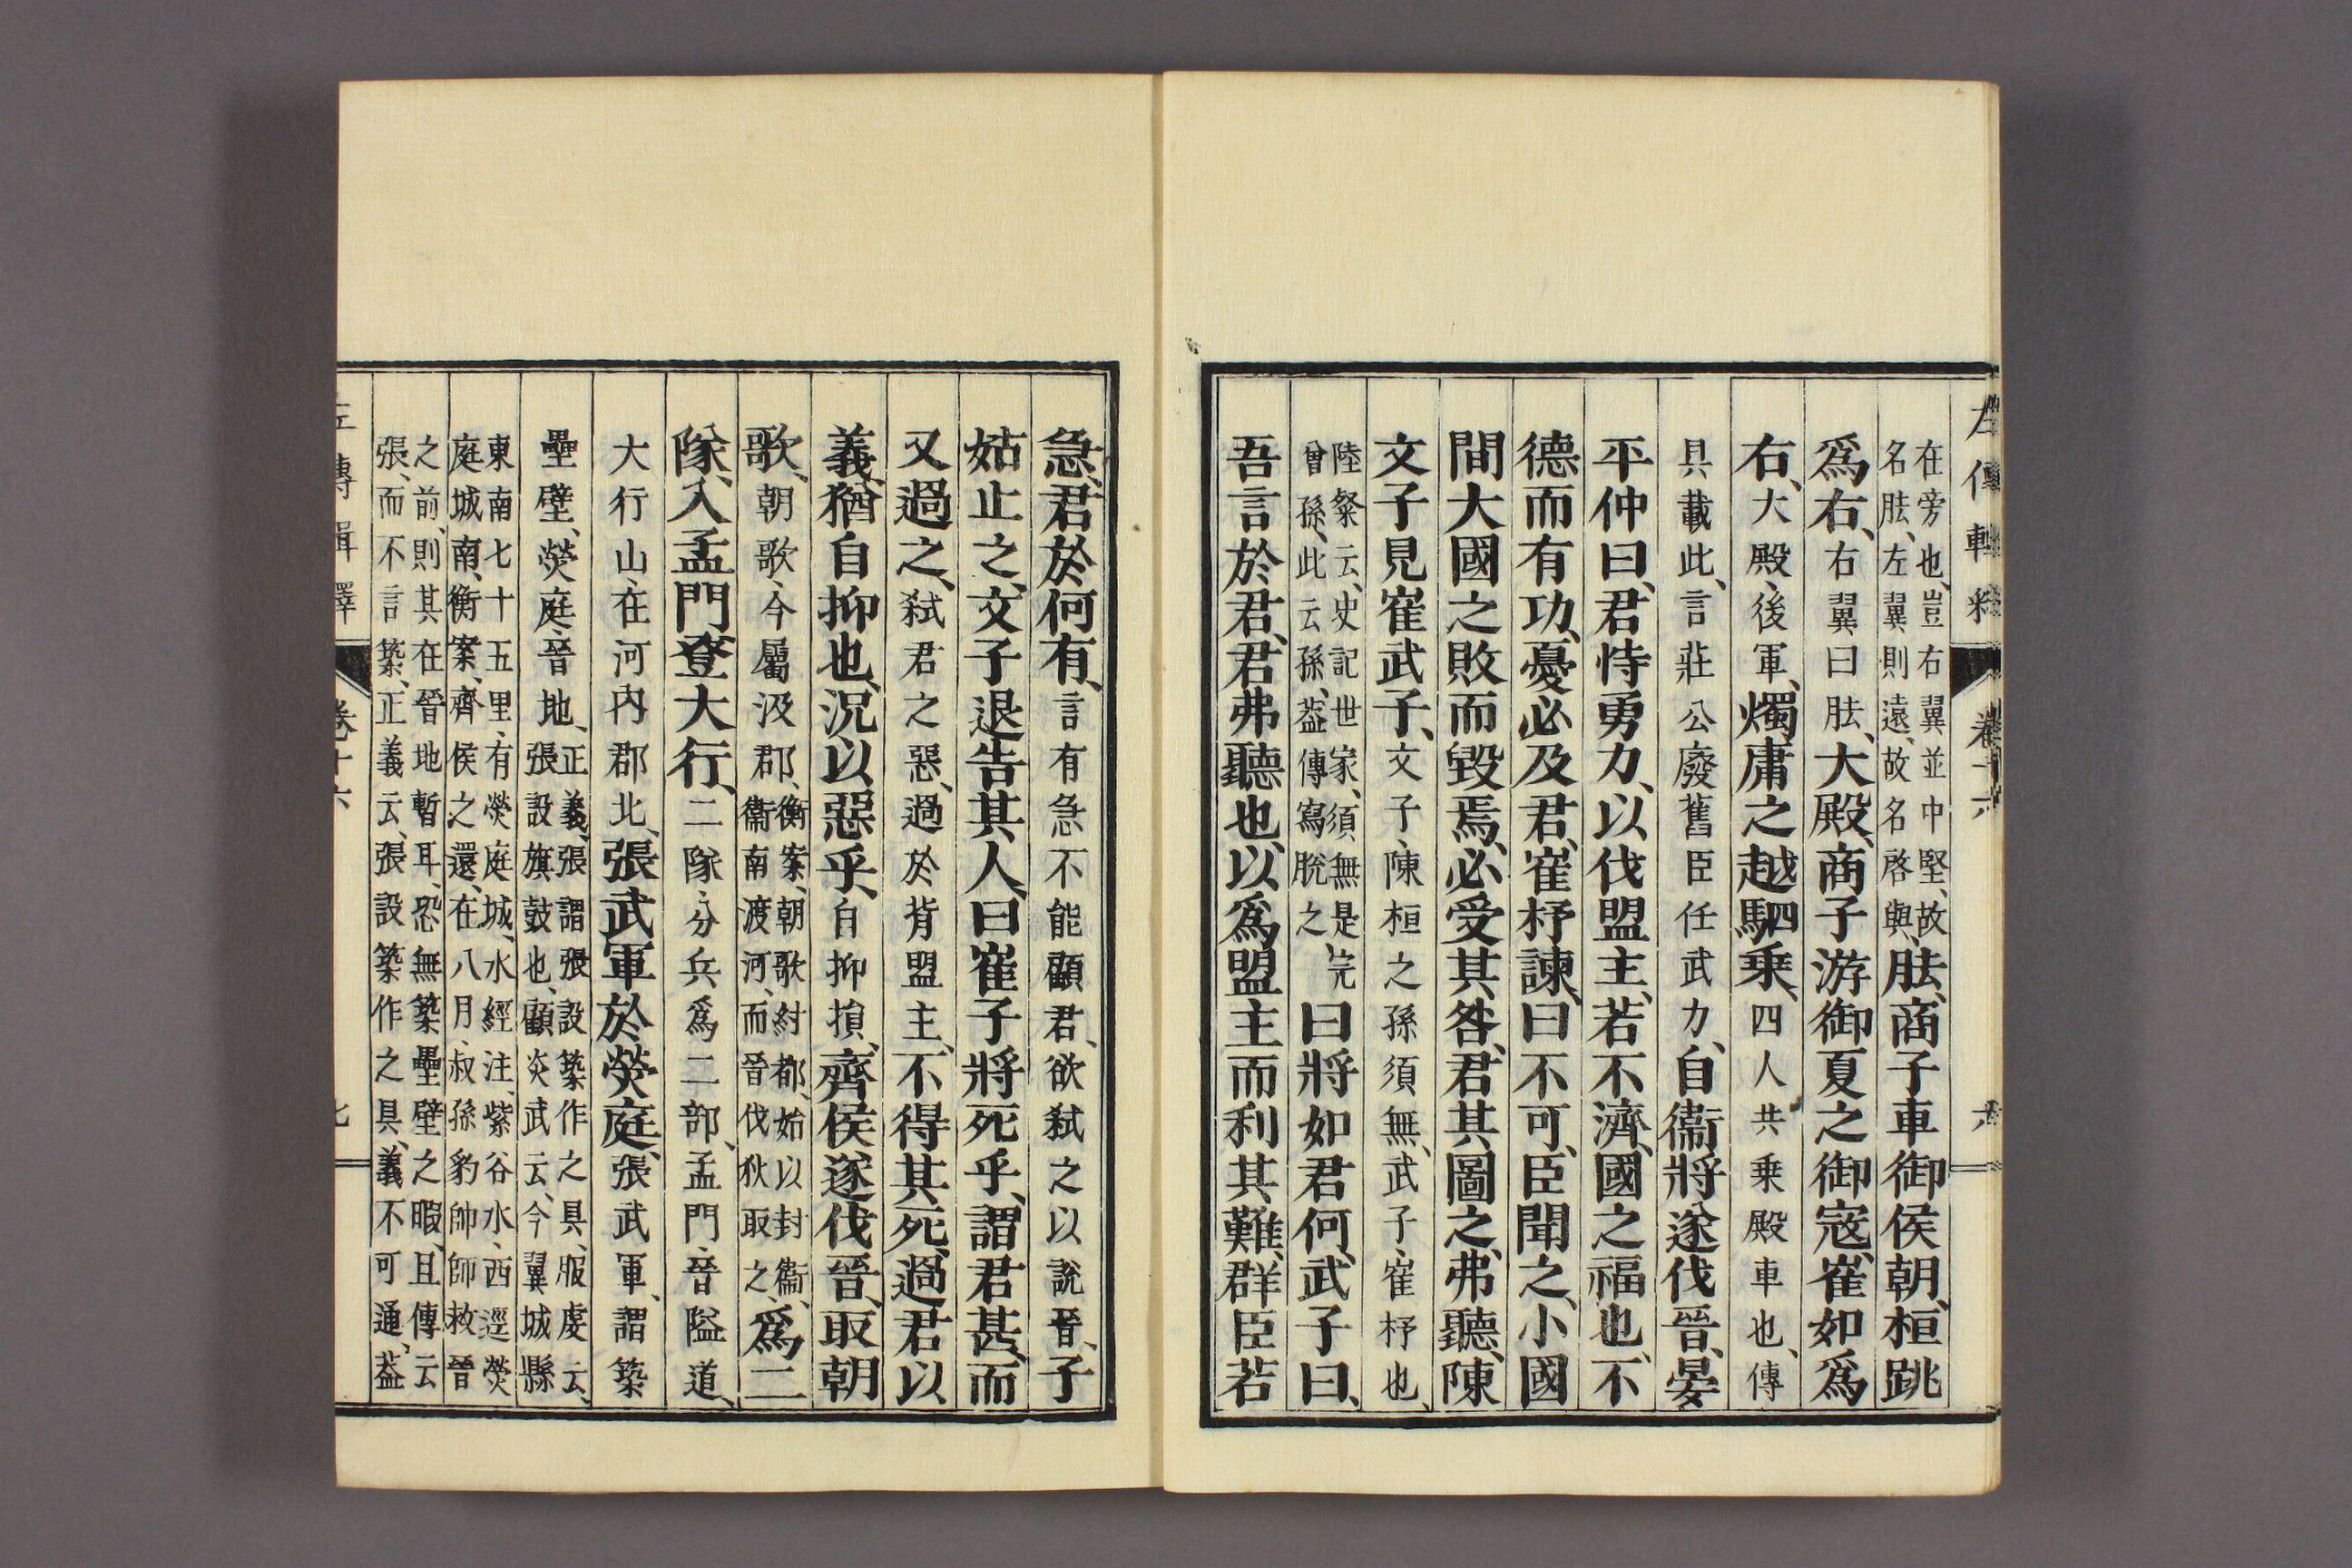 左傳輯釋 卷十六
在旁也、豈右翼並中堅、故名胠、左翼則遠、故名啓與、胠、商子車御侯朝、桓跳
爲右、右翼曰胠、大殿、商子游御夏之御寇、崔如爲
右、大殿、後軍、燭庸之越駟乗、四人共乗殿車也、傳
具載此、言莊公廢舊臣任武力、自衞將遂伐晉、晏
平仲曰、君恃勇力、以伐盟主、若不濟、國之福也、不
德而有功、憂必及君、崔杼諫、曰不可、臣聞之、小國
間大國之敗而毀焉、必受其咎、君其圖之、弗聽、陳
文子見崔武子、文子、陳桓之孫須無、武子、崔杼也、
陸粲云、史記世家、須無是完曾孫、此云孫、葢傳寫脫之、曰將如君何、武子曰、
吾言於君、君弗聽也、以爲盟主而利其難、群臣若
急、君於何有、言有急不能顧君、欲弑之以說晉、子
姑止之、文子退告其人、曰崔子將死乎、謂君甚、而
又過之、弑君之惡、過於背盟主、不得其死、過君以
義、猶自抑也、況以惡乎、自抑損、齊侯遂伐晉、取朝
歌、朝歌、今屬汲郡、衡案、朝歌紂都、始以封衞、衞南渡河、而晉伐狄取之、爲二
隊、入孟門登大行、二隊、分兵爲二部、孟門、晉隘道、
大行山、在河內郡北、張武軍於熒庭、張武軍、謂築
壘壁、熒庭、晉地、正義、張謂張設築作之具、服虔云、張設旗鼓也、顧炎武云、今翼城縣
東南七十五里、有熒庭城、水經注、紫谷水、西逕熒庭城南、衡案、齊侯之還、在八月、叔孫豹帥師救晉
之前、則其在晉地暫耳、恐無築壘壁之暇、且傳云張、而不言築、正義云、張設築作之具、義不可通、葢
左傳輯釋 卷十六